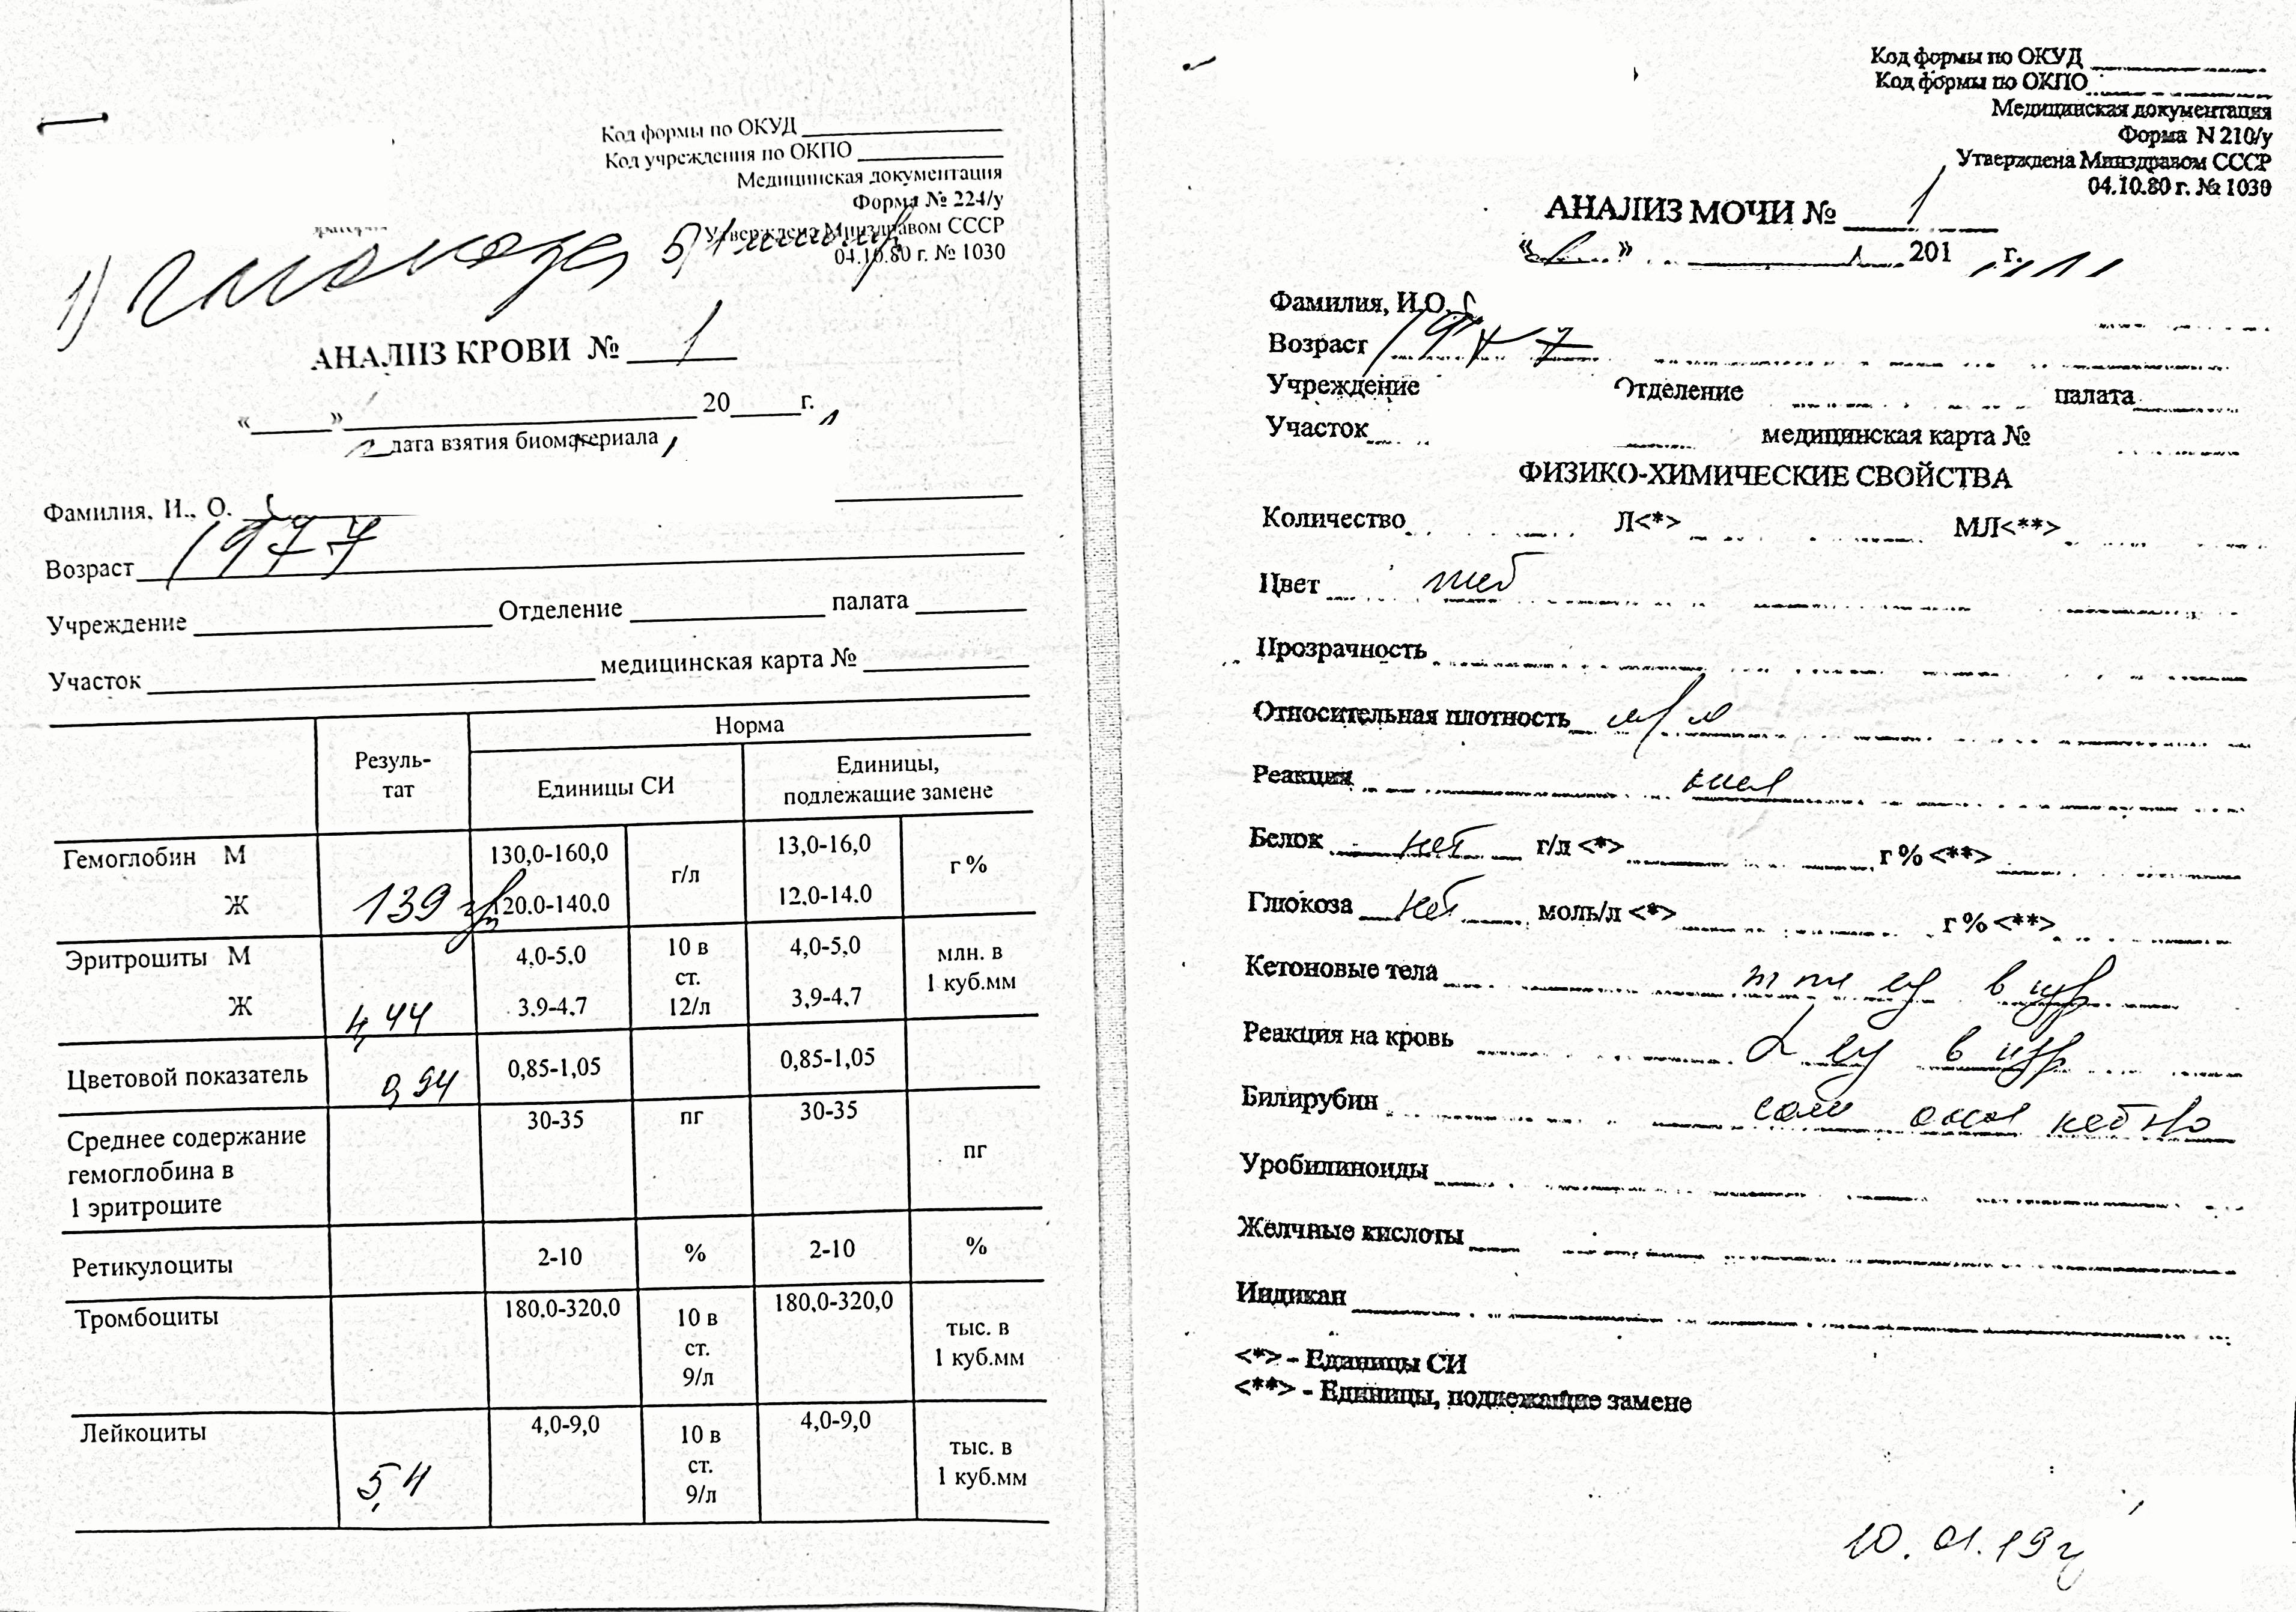 Код формы по ОКУД
Код учреждения по ОКПО
Медицинская документация
Форма № 224/у
Утверждена Минздравом СССР
04.10.80 г. № 1030
1) Глюкоза 5,1
АНАЛИЗ КРОВИ № 1
« » 20 г.
дата взятия биоматериала
Фамилия, И., О.
Возраст 1977
Учреждение Отделение палата
Участок медицинская карта №
Резуль-
тат
Норма
Единицы СИ
Единицы,
подлежащие замене
Гемоглобин М 130,0-160,0 г/л 13,0-16,0 г %
Ж 139 120,0-140,0 12,0-14.0
Эритроциты М 4,0-5,0 10 в ст. 12/л 4,0-5,0 млн. в 1 куб.мм
Ж 4,44 3,9-4,7 3,9-4,7
Цветовой показатель 0,94 0,85-1,05 0,85-1,05
Среднее содержание гемоглобина в 1 эритроците 30-35 пг 30-35 пг
Ретикулоциты 2-10 % 2-10 %
Тромбоциты 180,0-320,0 10 в ст. 9/л 180,0-320,0 тыс. в 1 куб.мм
Лейкоциты 5,4 4,0-9,0 10 в ст. 9/л 4,0-9,0 тыс. в 1 куб.мм
Код формы по ОКУД
Код формы по ОКПО
Медицинская документация
Форма N 210/у
Утверждена Минздравом СССР
04.10.80 г. № 1030
АНАЛИЗ МОЧИ № 1
« » 201 г.
Фамилия, И.О.
Возраст 1977
Учреждение Отделение палата
Участок медицинская карта №
ФИЗИКО-ХИМИЧЕСКИЕ СВОЙСТВА
Количество Л<*> МЛ<**>
Цвет жел
Прозрачность
Относительная плотность м/м
Реакция кисл
Белок нет г/л <*> г % <**>
Глюкоза нет моль/л <*> г % <**>
Кетоновые тела
Реакция на кровь
Билирубин соли
Уробилиноиды
Желчные кислоты
Индикан
<*> - Единицы СИ
<**> - Единицы, подлежащие замене
10.01.19г